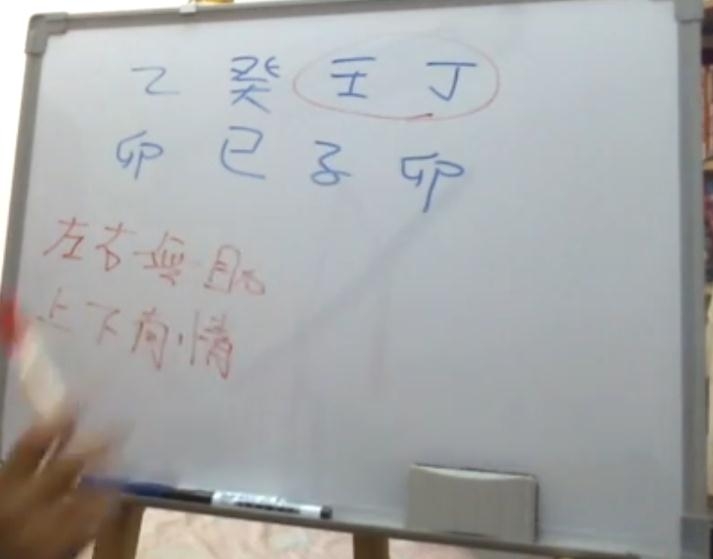 乙 癸 壬 丁
卯 巳 子 卯
左右無
上下有情